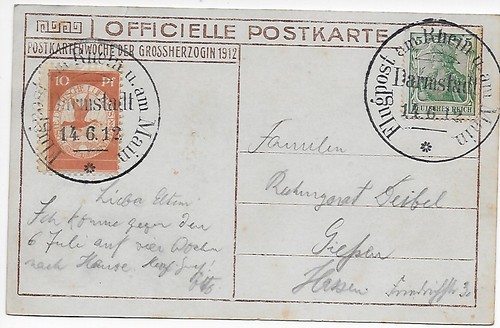 OFFICIELLE POSTKARTE
POSTKARTENWOCHE DER GROSSHERZOGIN 1912
10 Pf
Flugpost am Rhein u. am Main
Darmstadt
14.6.12
Flugpost am Rhein u. am Main
Darmstadt
14.6.12
DEUTSCHES REICH
Familien
Rechnungsrat Seibel
Gießen
Hessen
Liebe Eltern!
Ich komme gegen den
6 Juli auf vier Wochen
nach Hause.